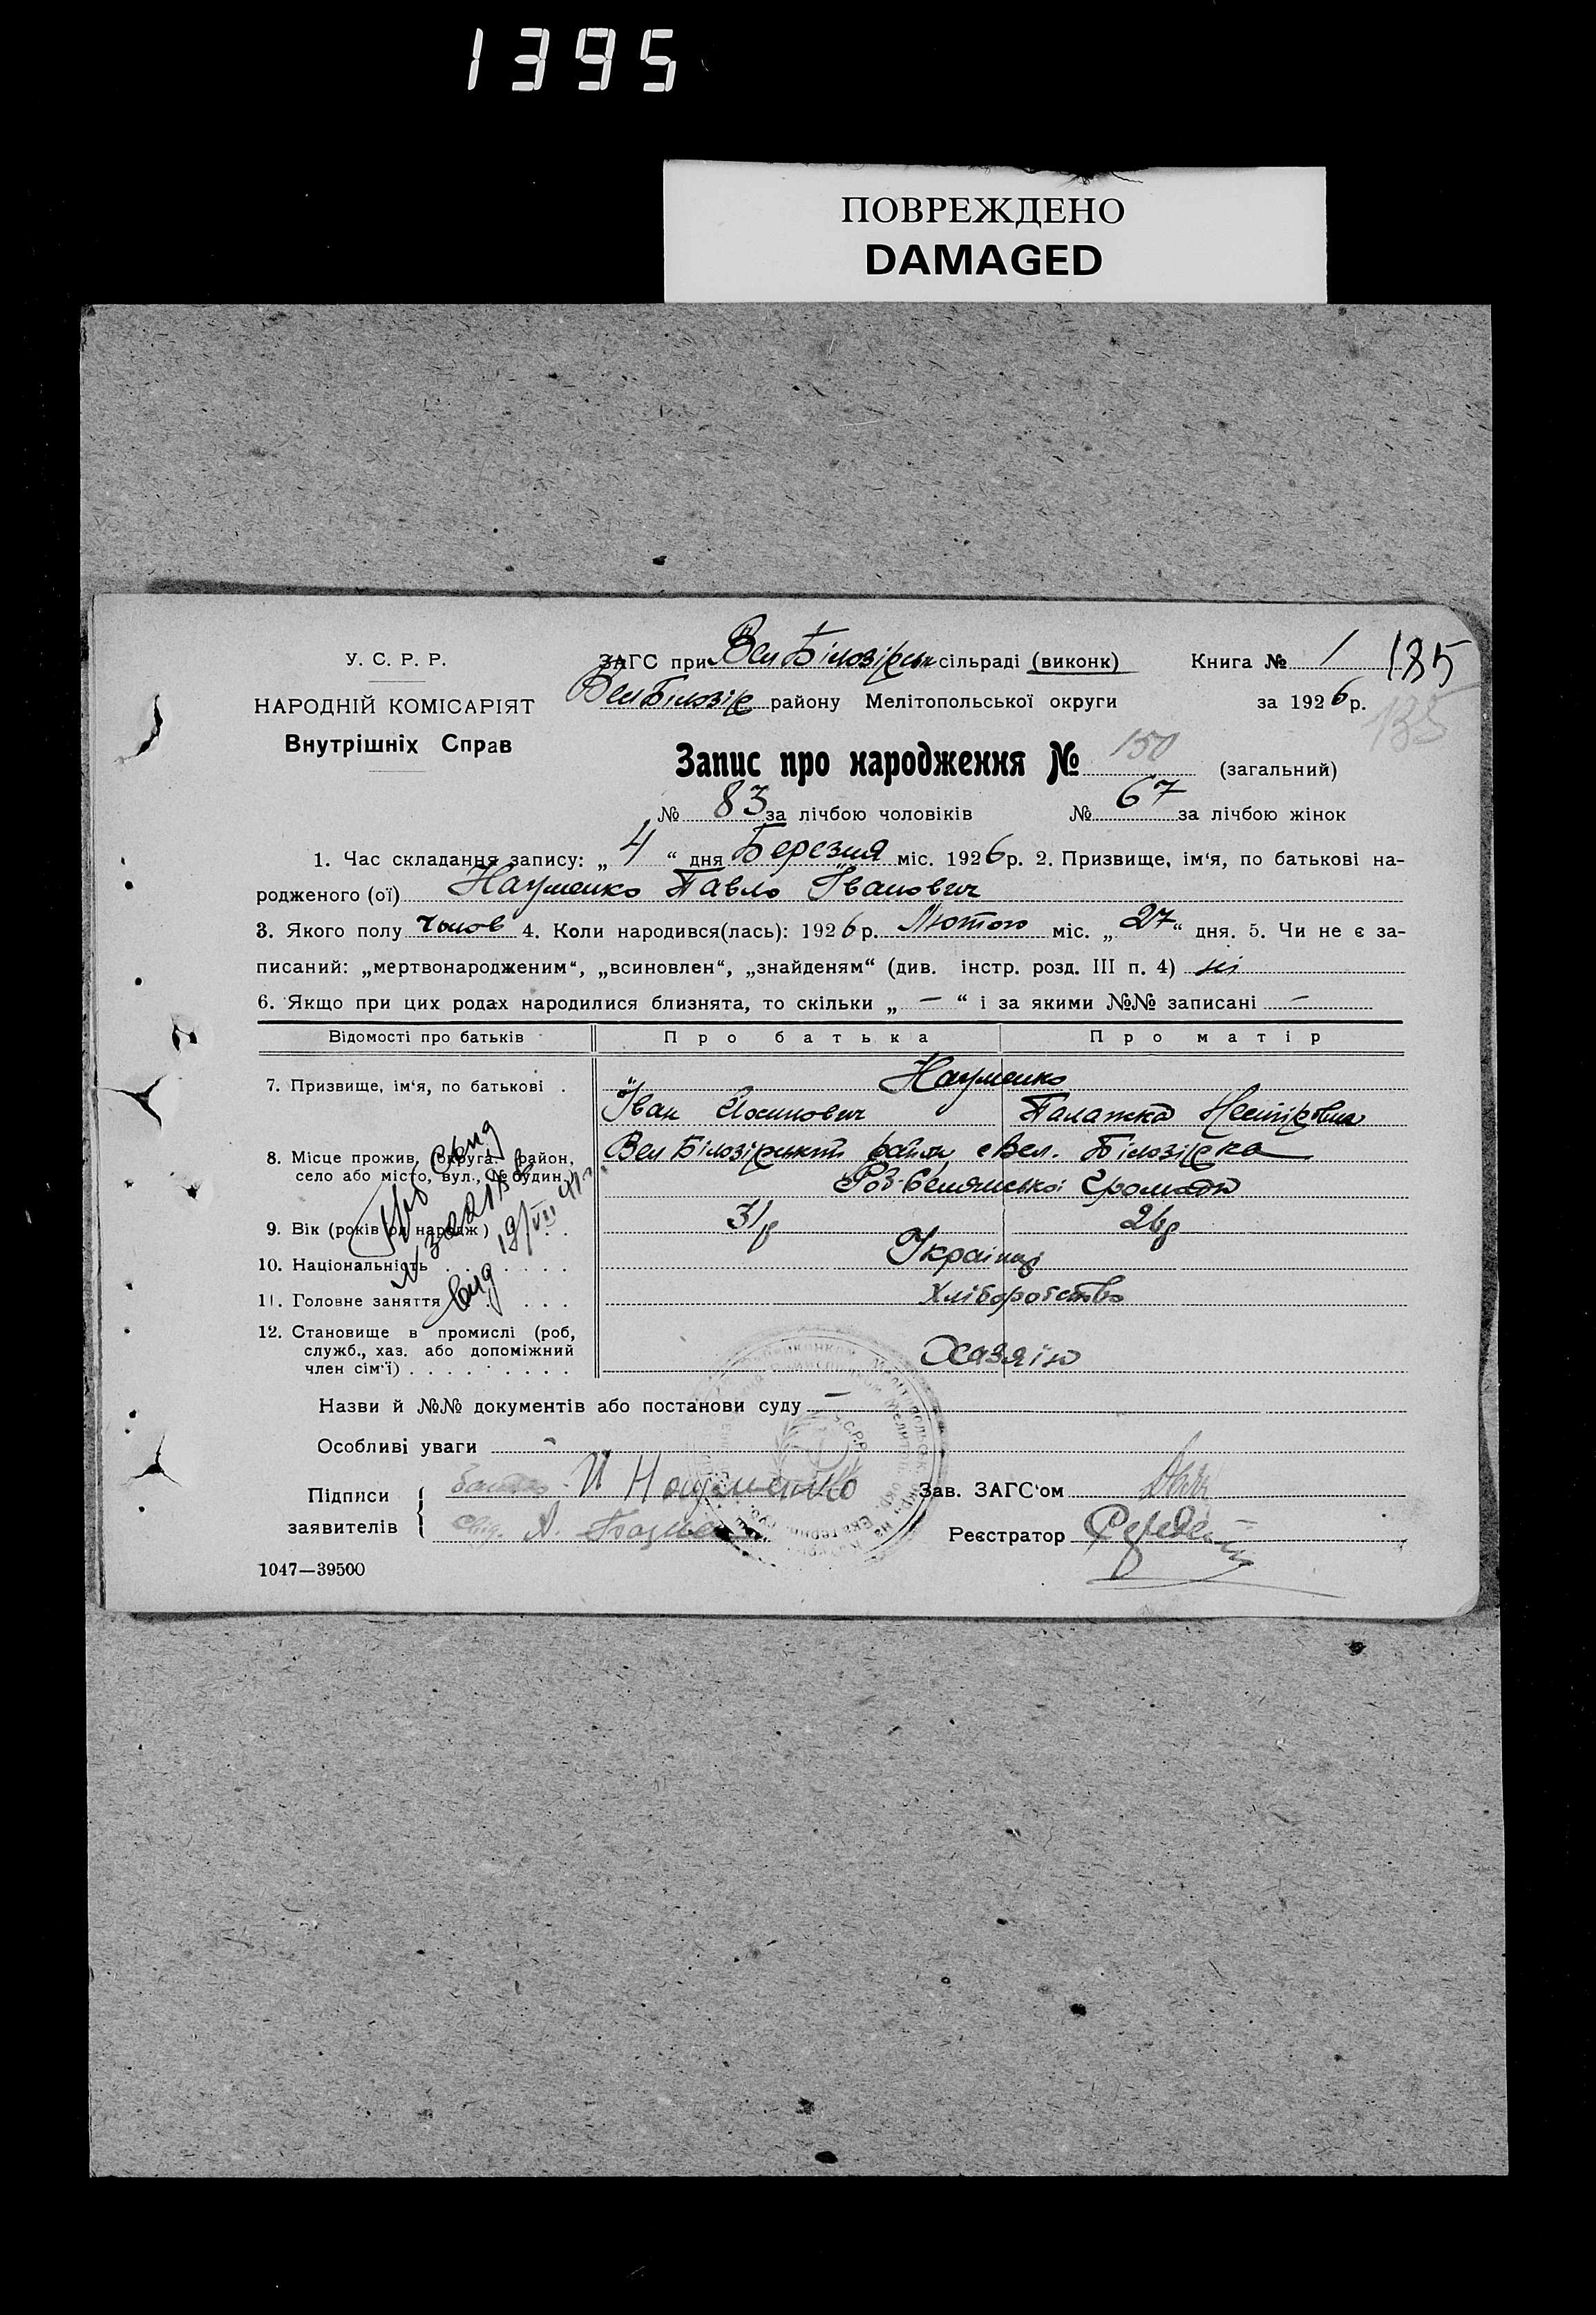 1395
ПОВРЕЖДЕНО
DAMAGED
У. С. Р. Р.
НАРОДНІЙ КОМІСАРІЯТ
Внутрішніх Справ
ЗАГС при Вел Білозірськ сільраді (виконк) Книга № 1 185
Вел Білозір району Мелітопольської округи за 1926 р.
135
Запис про народження № 150 (загальний)
№ 83 за лічбою чоловіків № 67 за лічбою жінок
1. Час складання запису: „ 4 “ дня Березня міс. 1926 р. 2. Призвище, ім‘я, по батькові на-
родженого (ої) Науменко Павло Іванович
3. Якого полу чолов 4. Коли народився(лась): 1926 р. Лютого міс. „ 27 “ дня. 5. Чи не є за-
писаний: „мертвонародженим“, „всиновлен“, „знайденям“ (див. інстр. розд. III п. 4) ні
6. Якщо при цих родах народилися близнята, то скільки „ — “ і за якими №№ записані —
Відомості про батьків Про батька Про матір
7. Призвище, ім‘я, по батькові . Науменко
Іван Йосипович Палажка Нестірівна
8. Місце прожив. (округа, район, Вел Білозірський район, с Вел. Білозірка
село або місто, вул., № будин.) громади
9. Вік (років од народж) . . 31 р 26 р
10. Національність . . . . . Українці
11. Головне заняття . . . . Хліборобство
12. Становище в промислі (роб,
служб., хаз. або допоміжний
член сім‘ї) . . . . . . . . . Хазяїн
19/VII 41
Назви й №№ документів або постанови суду —
Особливі уваги -
Підписи
заявителів
батько И Науменко
А.
Зав. ЗАГС‘ом
Реєстратор
1047—39500